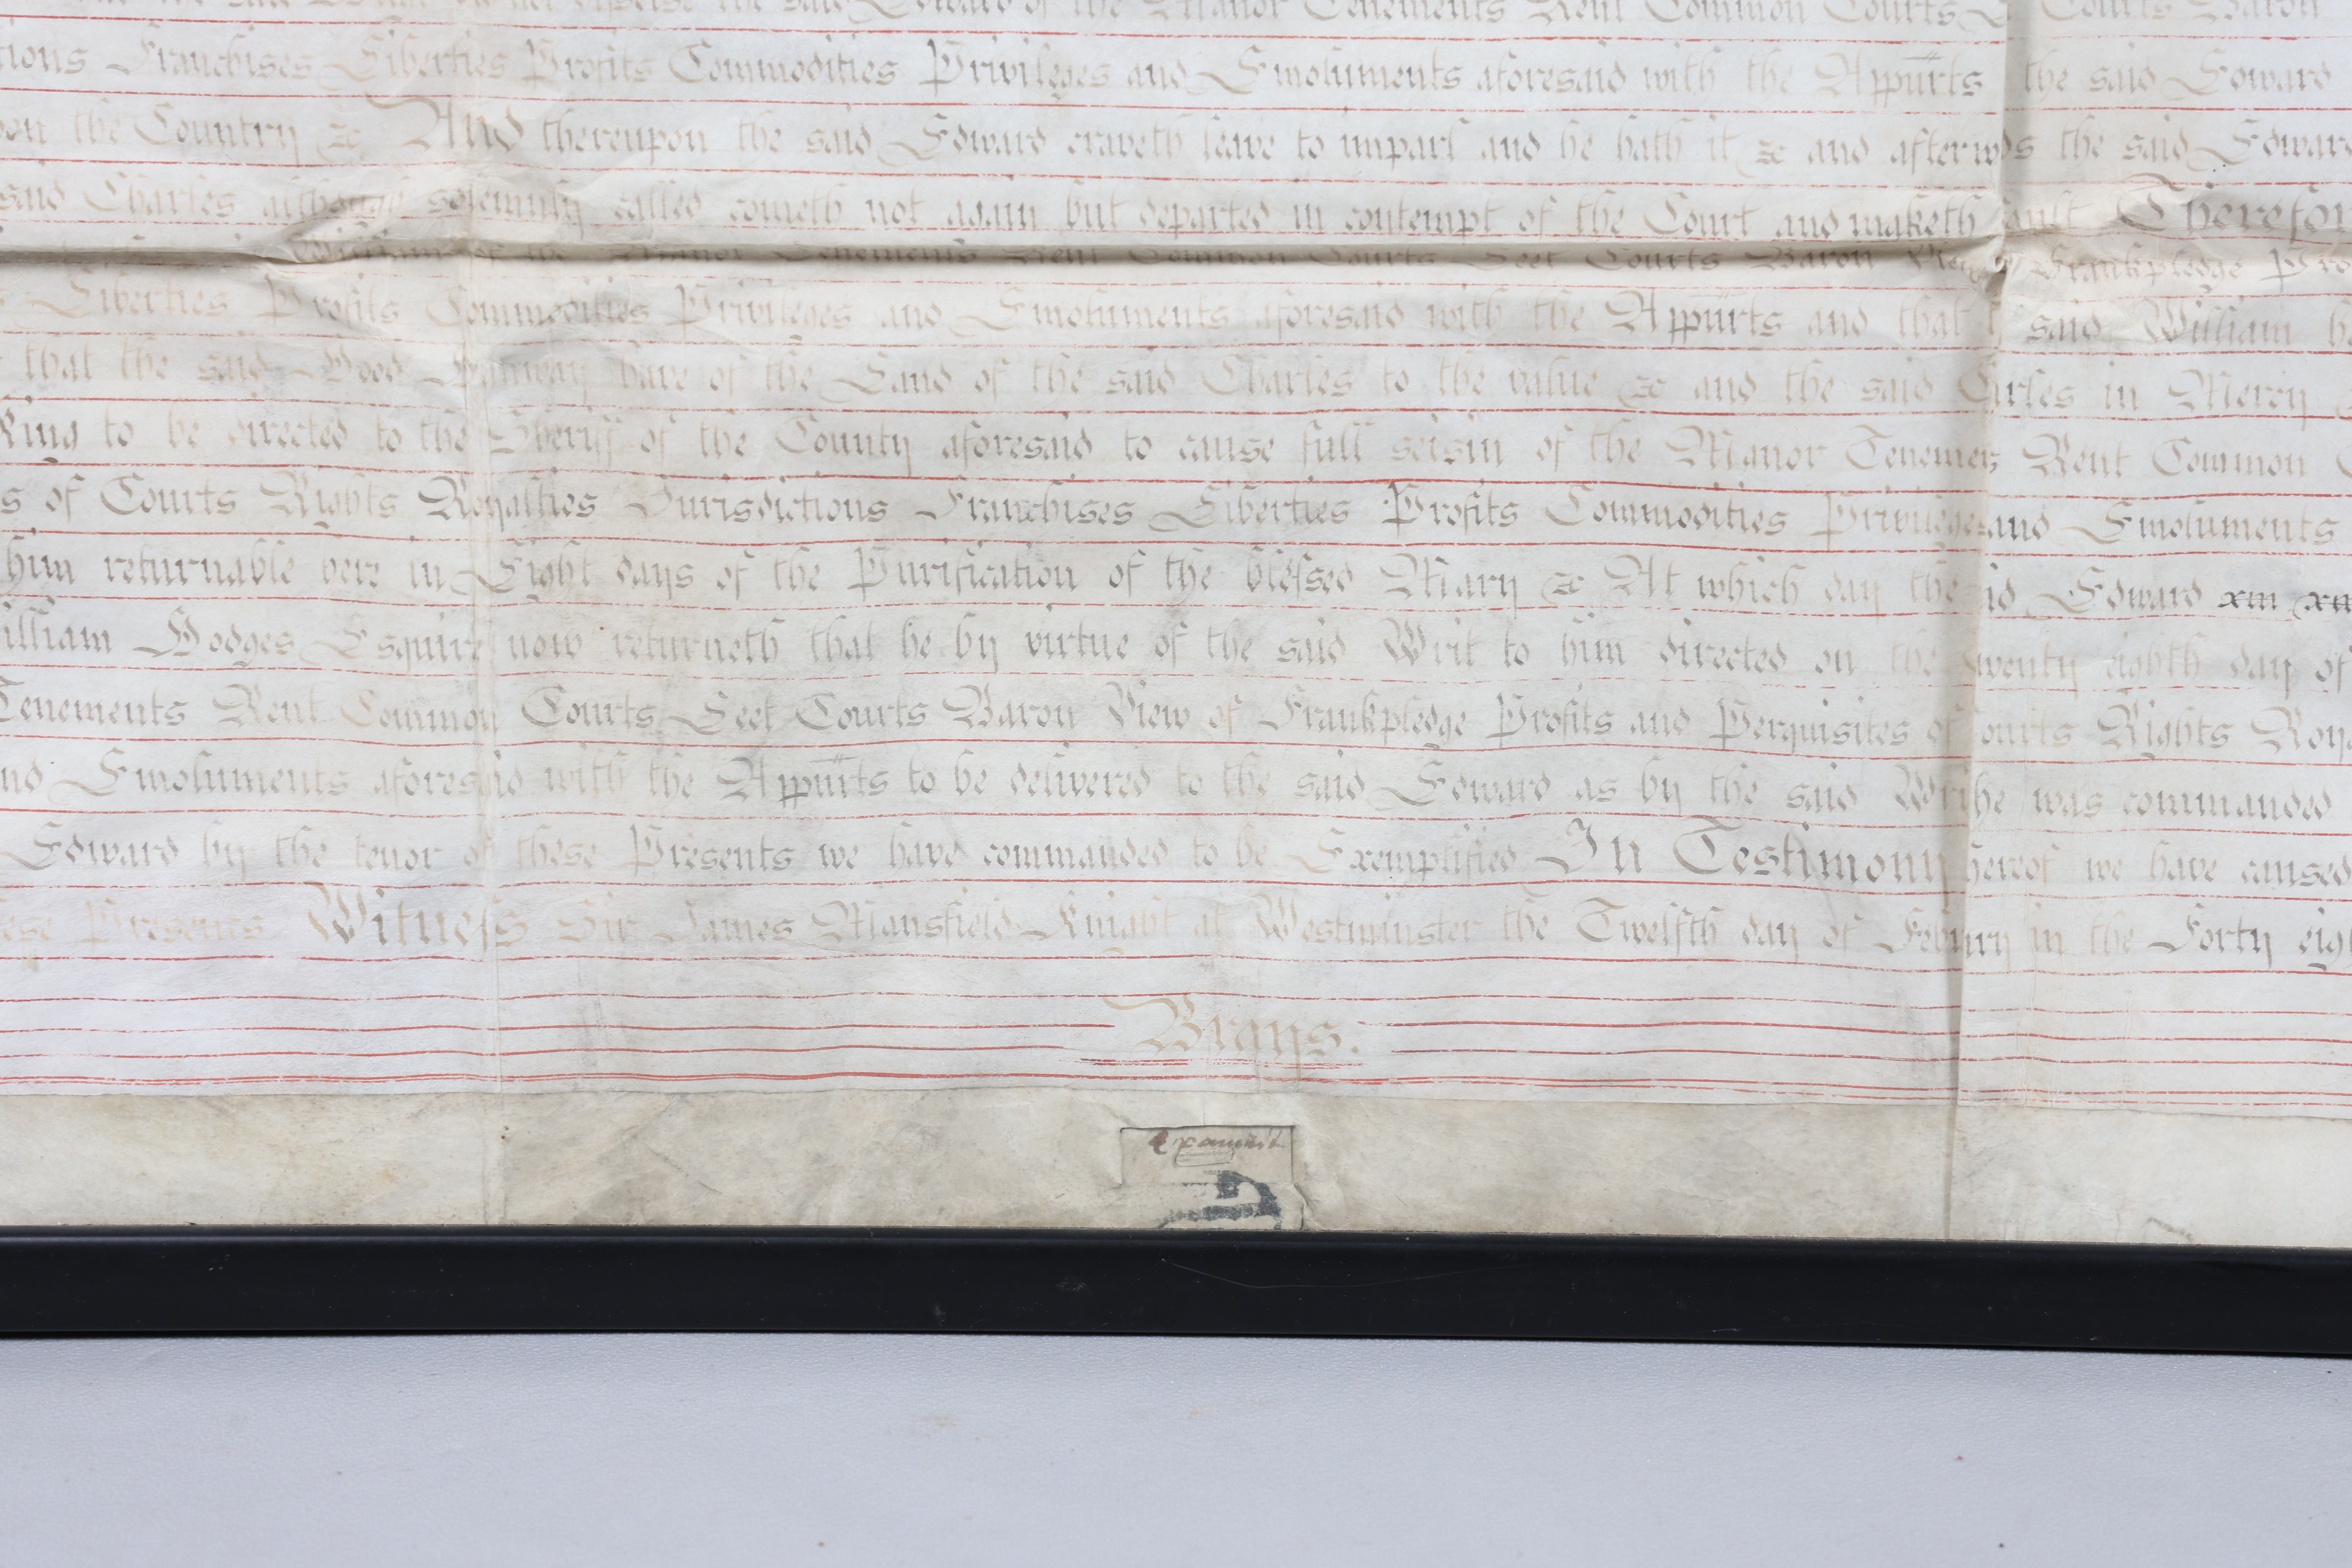 said Edward of the Manor Tenements Rent Common Courts Courts Baron
tions Franchises Liberties Profits Commodities Privileges and Emoluments aforesaid with the Appurts the said Edward
pon the Country &c And thereupon the said Edward craveth leave to imparl and he hath it &c and afterwds the said Edward
said Charles although solemnly called cometh not again but departed in contempt of the Court and maketh ault Therefor
William of the Manor Tenements Rent Common Courts Leet Courts Baron View Frankpledge Pro
Liberties Profits Commodities Privileges and Emoluments aforesaid with the Appurts and that said William h
that the said have of the Land of the said Charles to the value &c and the said rles in Mercy
King to be directed to the Sheriff of the County aforesaid to cause full seisin of the Manor Tenemen Rent Common
s of Courts Rights Royalties Jurisdictions Franchises Liberties Profits Commodities Privileges and Emoluments
him returnable here in Eight days of the Purification of the blessed Mary &c At which day the id Edward
illiam Hodges Esquire now returneth that he by virtue of the said Writ to him directed on the twenty eighth day of
Tenements Rent Common Courts Leet Courts Baron View of Frankpledge Profits and Perquisites of ourts Rights Roya
nd Emoluments aforesaid with the Appurts to be delivered to the said Edward as by the said Writ he was commanded
Edward by the tenor of these Presents we have commanded to be Exemplified In Testimony hereof we have caused
ese Presents Witness Sir James Mansfield Knight at Westminster the Twelfth day of Febry in the Forty eigh
Brays.